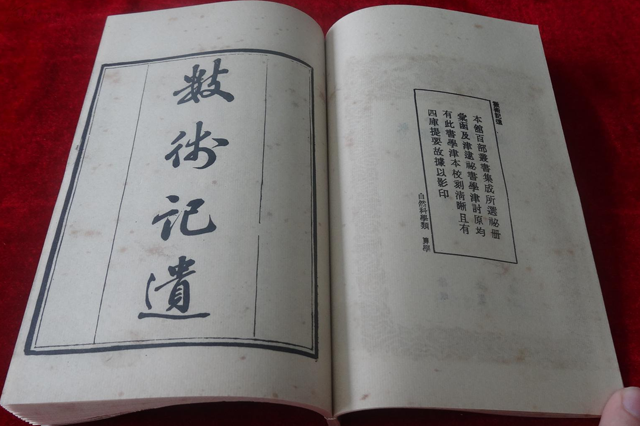 數術記遺
本館百部叢書集成所選祕册
彙函及津逮祕書學津討原均
有此書學津本校刻清晰且有
四庫提要故據以影印
自然科學類 算學
數術記遺